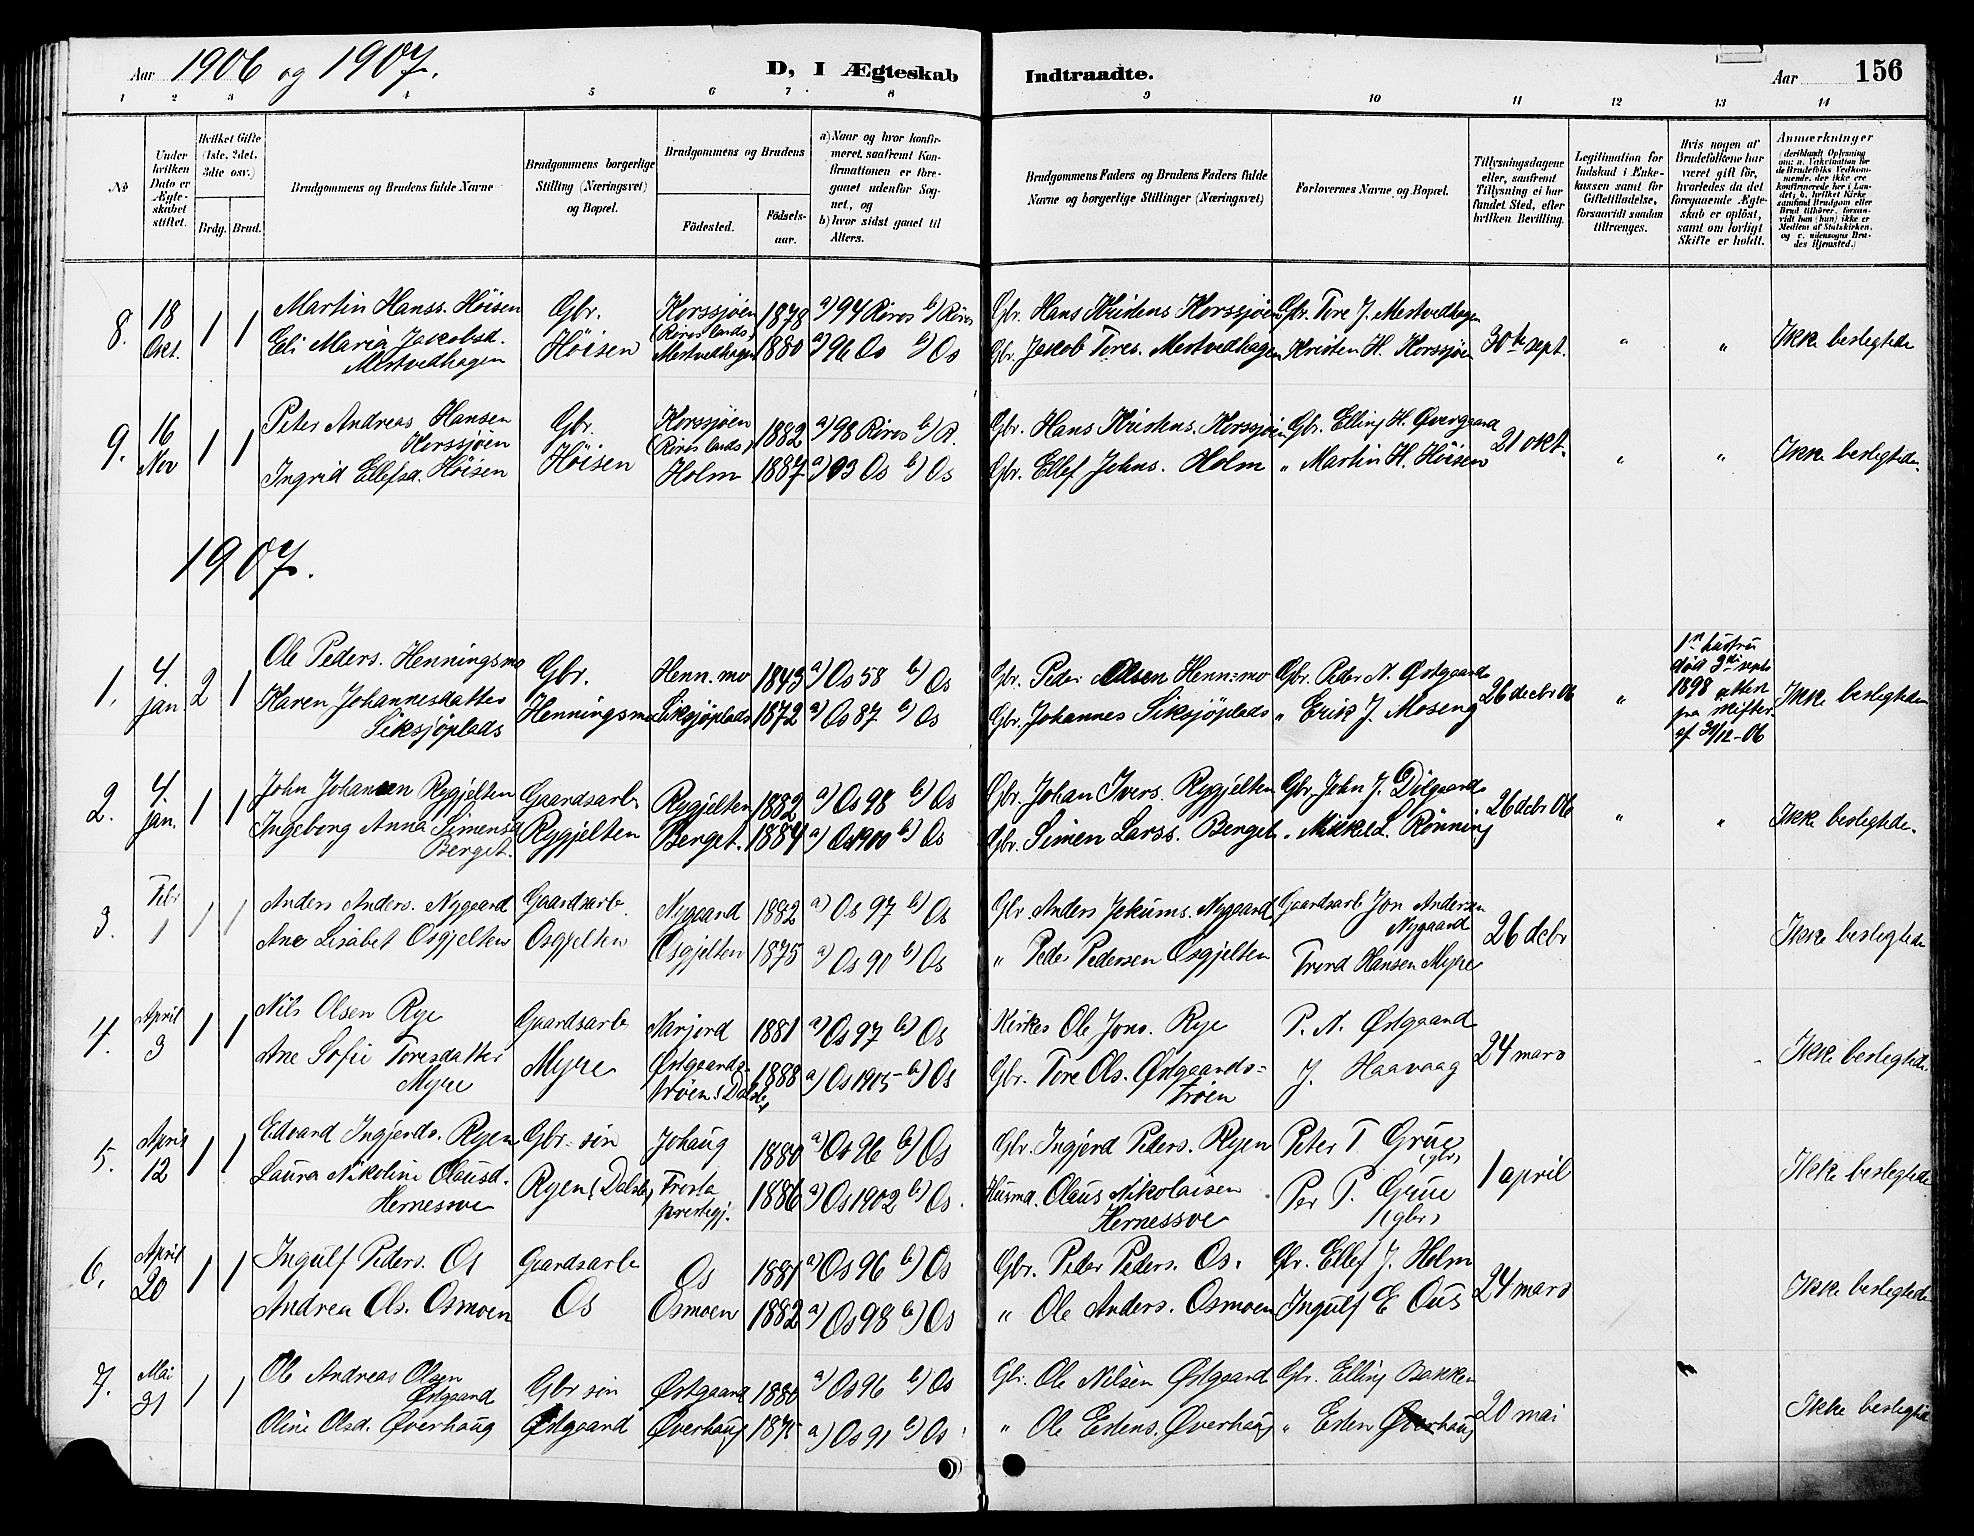 Aar 1906 og 1907.
D, I Ægteskab Indtraadte.
Aar 156
1 2 3 4 5 6 7 8 9 10 11 12 13 14
No
Under hvilken Dato er Ægteskabet stiftet.
Hvilket Gifte (1ste, 2det, 3die osv.)
Brdg. Brud.
Brudgommens og Brudens fulde Navne
Brudgommens borgerlige Stilling (Næringsvei) og Bopæl.
Brudgommens og Brudens
Fødested.
Fødselsaar.
a) Naar og hvor konfirmeret, saafremt Konfirmationen er foregaaet udenfor Sognet, og
b) hvor sidst gaaet til Alters.
Brudgommens Faders og Brudens Faders fulde Navne og borgerlige Stillinger (Næringsvei)
Forlovernes Navne og Bopæl.
Tillysningsdagene eller, saafremt Tillysning ei har fundet Sted, efter hvilken Bevilling.
Legitimation for Indskud i Enkekassen samt for Giftetilladelse, forsaavidt saadan tiltrænges.
Hvis nogen af Brudefolkene har været gift før, hvorledes da det foregaaende Ægteskab er opløst, samt om lovligt Skifte er holdt.
Anmærkninger
(deriblandt Oplysning om: a. Vakcination for de Brudefolks Vedkommende, der ikke ere konfirmerede her i Landet; b. hvilket Kirkesamfund Brudgom eller Brud tilhører, forsaavidt han (hun) ikke er Medlem af Statskirken, og c. udensogns Brudes Hjemsted.)
8. 18 Okt. 1 1 Martin Hanss. Höisen Gbr. Korssjøen (Röros lands) 1878 a) 94 Röros b) Röros Gbr. Hans Kristens Korssjøen Gbr. Tore J. Mestvedhagen 30te sept. " " Ikke beslegtede
Eli Maria Jakobsd. Mestvedhagen Höisen Mestvedhagen 1880 a) 96 Os b) Os Gbr. Jakob Tores. Mestvedhagen Kristen H. Korssjøen
9. 16 Nov 1 1 Peter Andreas Hansen Korssjøen Gbr. Korssjøen (Röros lands) 1882 a) 98 Röros b) R. Gbr. Hans Kristens. Korssjøen Gbr. Elling H. Øvergaard 21 okt. " " Ikke beslegtede.
Ingrid Ellefsd. Höisen Höisen Holm 1887 a) 03 Os b) Os Gbr. Ellef Johns. Holm " Martin H. Höisen
1907.
1. 4 jan 2 1 Ole Peders. Henningsmo Gbr. Henn. mo 1843 a) Os 58 b) Os Gbr. Peder Olsen Henn=mo Gbr. Peder N. Østgaard 26 decbr 06 " 1n hustru død 3di sept 1898 Ikke beslegtede
Karen Johannesdatter Siksjöplads Henningsmo Siksjöplads 1872 a) Os 87 b) Os Gbr. Johannes Siksjöplads " Erik J. Moseng
2. 4 jan. 1 1 John Johansen Rygjelten Gaardsarb Rygjelten 1882 a) Os 98 b) Os Gbr. Johan Ivers. Rygjelten Gbr. John J. Dölgaard 26 debr 06 " " Ikke beslegtede.
Ingeborg Anna Simensd Berget. Rygjelten Berget. 1884 a) Os 1900 b) Os Gbr. Simen Larss. Berget " Mikkel L. Rönning
3. Febr 1 1 1 Anders Anders. Nygaard Gaardsarb. Nygaard 1882 a) Os 97 b) Os Gbr Anders Jokums. Nygaard Gaardsarb Jon Andersen Nygaard 26 debr Ikke beslegtede
Ane Lisabet Osgjelten Osgjelten Osgjelten 1875 a) Os 90 b) Os " Peder Pedersen Osgjelten Trond Hansen Myre
4. April 3 1 1 Nils Olsen Rye Gaardsarb Narjord 1881 a) Os 97 b) Os Kirkes Ole Jons. Rye P. N. Østgaard 24 mars Ikke beslegtede
Ane Sofie Toresdatter Myre Myre Østgaardstrøen 1888 a) Os 1905 b) Os Gbr. Tore Ols. Østgaards=trøen J. Haavaag
5. April 12 1 1 Edvard Ingjerds. Ryen Gbr. sön Johaug 1880 a) Os 96 b) Os Gbr. Ingjerd Peders. Ryen Peter T Grue (gbr) 1 april Ikke beslegtede
Laura Nikoline Olausd. Hernessve Ryen (Dalsb) Frosta prestegj. 1886 a) Os 1902 b) Os. Husmd. Olaus Nikolaisen Hernessve Per P. Grue (gbr)
6. April 20 1 1 Ingulf Peders. Os Gaardsarb Os 1881 a) Os 96 b) Os Gbr. Peder Peders. Os. Gbr. Ellef J. Holm 24 mars Ikke beslegtede
Andrea Ols. Osmoen Os Osmoen 1882 a) Os 98 b) Os " Ole Anders. Osmoen Ingulf E Ous
7. Mai 31 1 1 Ole Andreas Olsen Østgaard Gbr sön Østgaard 1880 a) Os 96 b) Os Gbr. Ole Nilsen Østgaard Gbr. Elling Bakken 20 mai Ikke beslegtede
Oline Olsd. Øverhaug Østgaard Øverhaug 1875 a) Os 91 b) Os " Ole Estens. Øverhaug " Esten Øverhaug